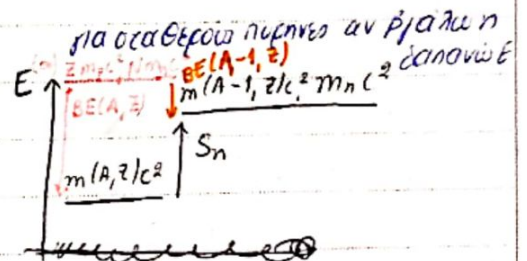 για σταθερούς πυρήνες αν βγάλω n
δαπανώ E
Zmpc² Nmnc²
BE(A-1, Z)
E
m(A-1, Z)c² mnc²
BE(A, Z)
Sn
m(A, Z)c²